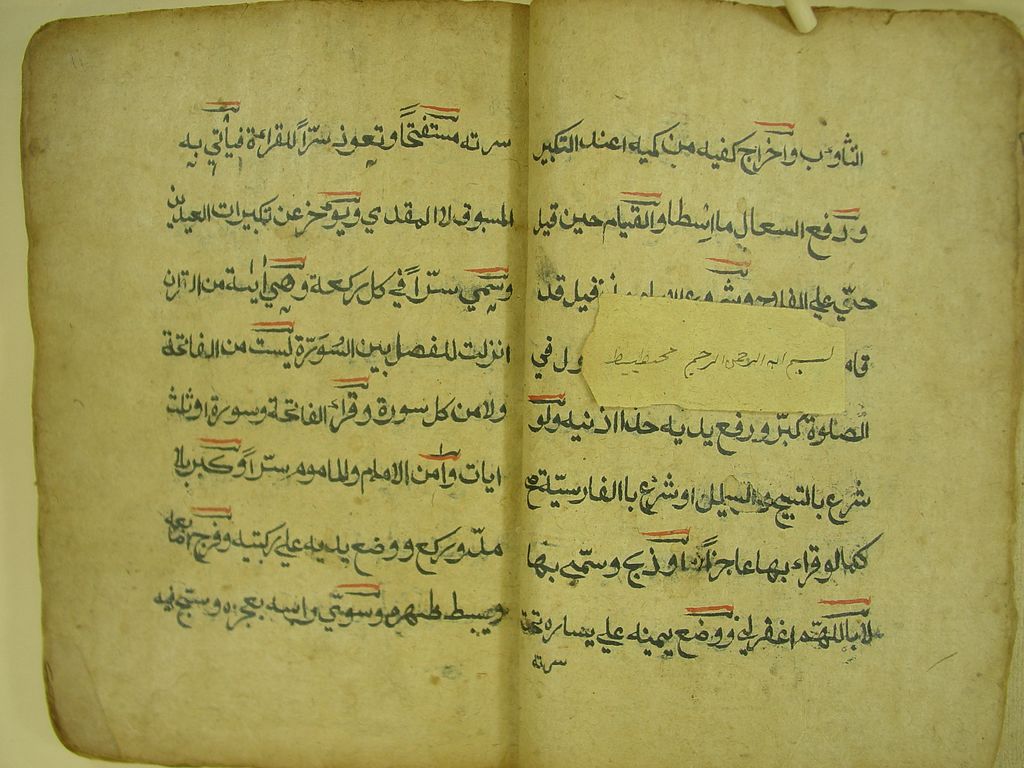 التثاوٴب واخراج كفيه من كميه اعند التكبير
ودفع السعال ما اسطا والقيام حين قيل
حتي علي الفلاح وشروع قيل قد
قام
بسم الله الرحمن الرحيم
ول في
الصلوة كبر ورفع يديه حذا اذنيه ولو
شرع بالتسبيح و او شرع باالفارسيّة صح
كما لو قراء بها عاجزاً او ذبح وسمّي بها
لا باللهمّ اغفرلي ووضع يمينه علي يساره تحت
سرته
سرته مستفتحاً وتعوذ سرّاً للقراءة فيأتي به
المسبوق لا المقدي ويؤخر عن تكبيرات العيدين
وسمي سرّاً في كل ركعة وهي اٰية من القران
انزلت للفصل بين السُورَة ليست من الفاتحة
ولا من كل سورة وقراٴ الفاتحة وسورة او ثلث
ايات واٰمن الامام والماموم سرّاً وكبر بلا
مدّ وركع ووضع يديه علي ركبتيه وفرج اصابعه
وبسط ظهره وسوّي راسه بعجزه وسبح فيه